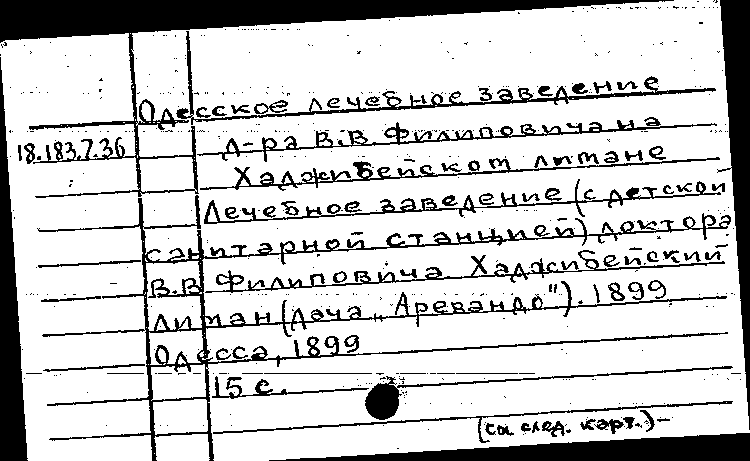 Одесское лечебное заведение
18.183.7.36
д-ра В.В. Филиповича на
Хаджибейском лимане
Лечебное заведение (с детской
санитарной станцией) доктора
В.В Филиповича Хаджибейский
лиман (дача „Аревандо"). 1899
Одесса, 1899
15 с.
(см. след. карт.)-